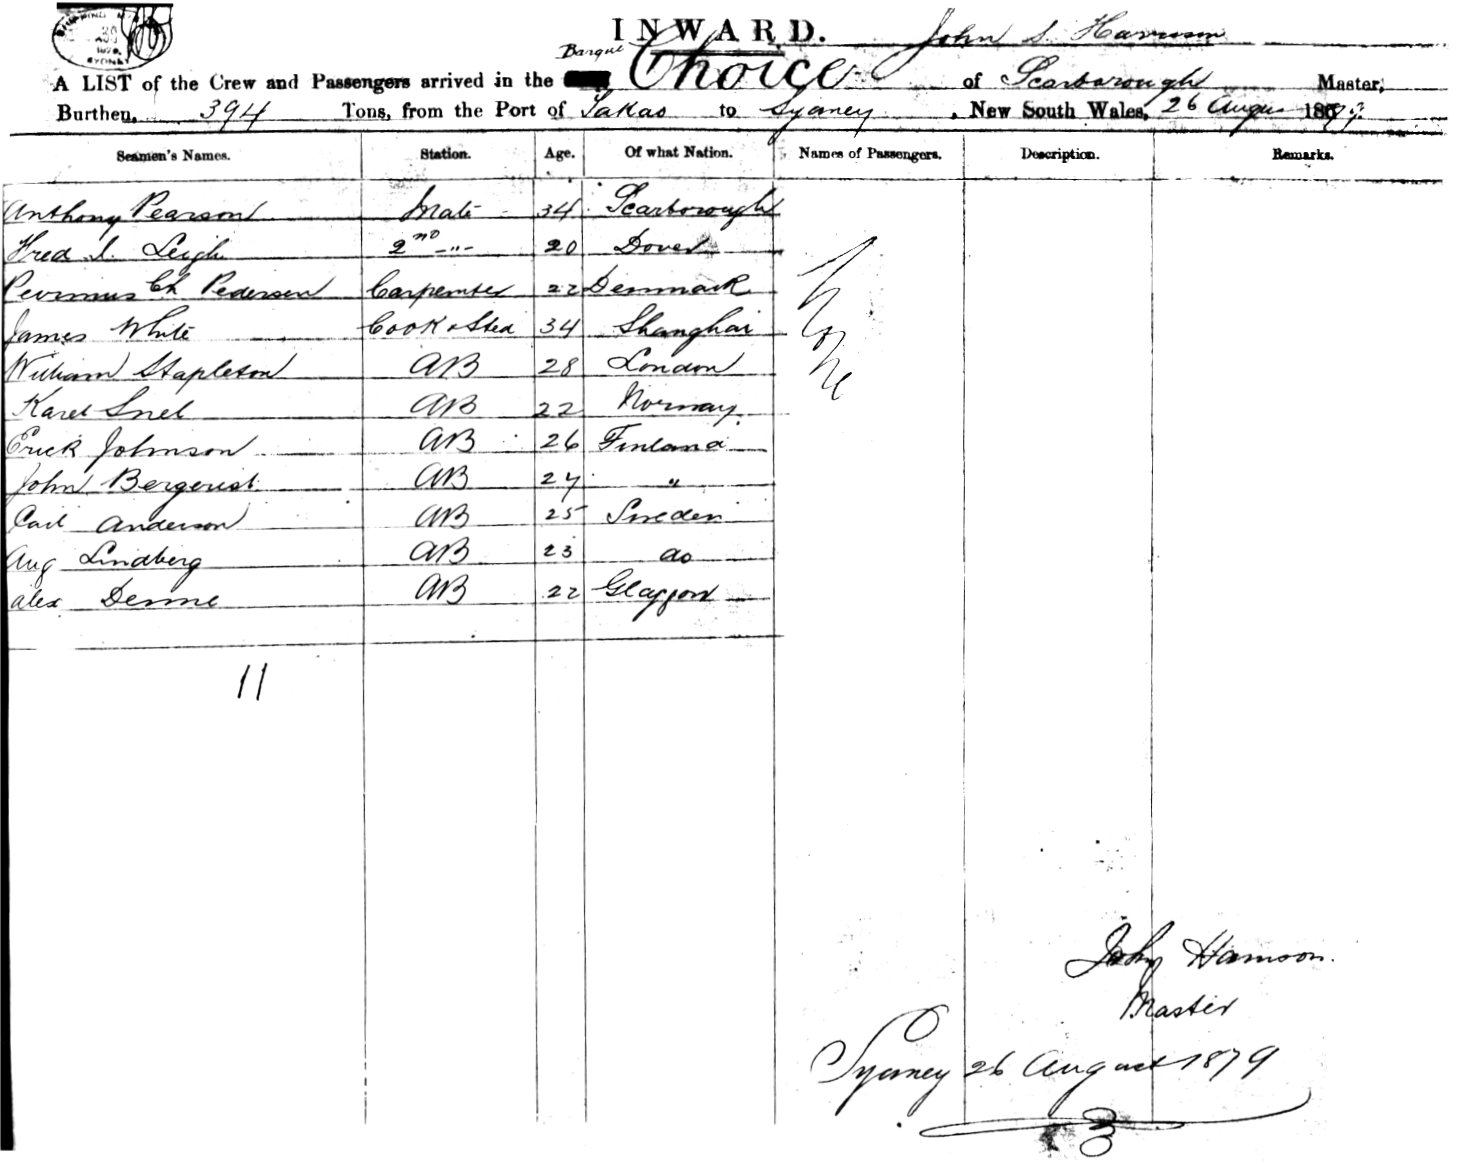 SHIPPING MASTER
SYDNEY
INWARD. John S. Harrison
A LIST of the Crew and Passengers arrived in the Barque Choice of Scarborough Master,
Burthen, 394 Tons, from the Port of Takao to Sydney, New South Wales, 26 Augus 1879
Seamen's Names. Station. Age. Of what Nation. Names of Passengers. Description. Remarks.
Anthony Pearson Mate 34 Scarborough
Fred S. Leigh 2nd -"- 20 Dover
Ch Pedersen Carpenter 22 Denmark
James White Cook & Std 34 Shanghai
William Stapleton AB 28 London
Karel Snel AB 22 Norway
Erick Johnson AB 26 Finland
John Bergqvist AB 24 "
Carl Anderson AB 25 Sweden
Aug Lindberg AB 23 do
Alex AB 22 Glasgow
None
11
John Harrison.
Master
Sydney 26 August 1879